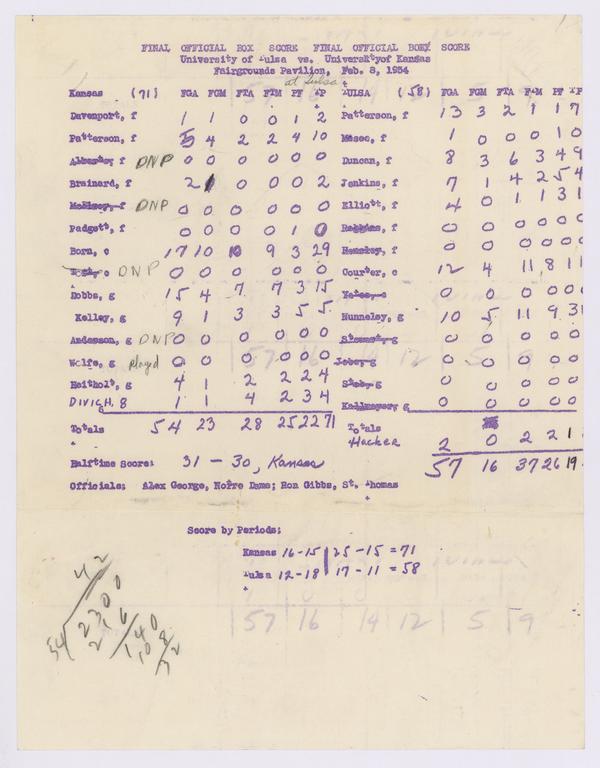 FINAL OFFICIAL BOX SCORE FINAL OFFICIAL BOX SCORE
University of Tulsa vs. University of Kansas
Fairgrounds Pavilion, Feb. 8, 1954
at Tulsa
Kansas (71) FGA FGM FTA FTM PF TP TULSA (58) FGA FGM FTA FTM PF TP
Davenport, f 1 1 0 0 1 2 Patterson, f 13 3 2 1 1 7
Patterson, f 5 4 2 2 4 10 Masec, f 1 0 0 0 1 0
f DNP 0 0 0 0 0 0 Duncan, f 8 3 6 3 4 9
Brainard, f 2 1 0 0 0 2 Jenkins, f 7 1 4 2 5 4
f DNP 0 0 0 0 0 0 Elliott, f 4 0 1 1 3 1
Padgett, f 0 0 0 0 1 0 Robbins, f 0 0 0 0 0 0
Born, c 17 10 10 9 3 29 Hensley, f 0 0 0 0 0 0
c DNP 0 0 0 0 0 0 Courter, c 12 4 11 8 1 1
Dobbs, g 15 4 7 7 3 15 Yates, c 0 0 0 0 0 0
Kelley, g 9 1 3 3 5 5 Nunneley, g 10 5 11 9 3 1
Anderson, g DNP 0 0 0 0 0 0 g 0 0 0 0 0 0
Wolfe, g played 0 0 0 0 0 0 g 0 0 0 0 0 0
Heitholt, g 4 1 2 2 2 4 g 0 0 0 0 0 0
DIVICH, g 1 1 4 2 3 4 g 0 0 0 0 0 0
Totals 54 23 28 25 22 71 Totals
Hacker 2 0 2 2 1
57 16 37 26 19
Halftime Score: 31 - 30, Kansas
Officials: Alex George, Notre Dame; Ron Gibbs, St. Thomas
Score by Periods:
Kansas 16-15 | 25-15 = 71
Tulsa 12-18 | 17-11 = 58
42
54 2300
216
140
108